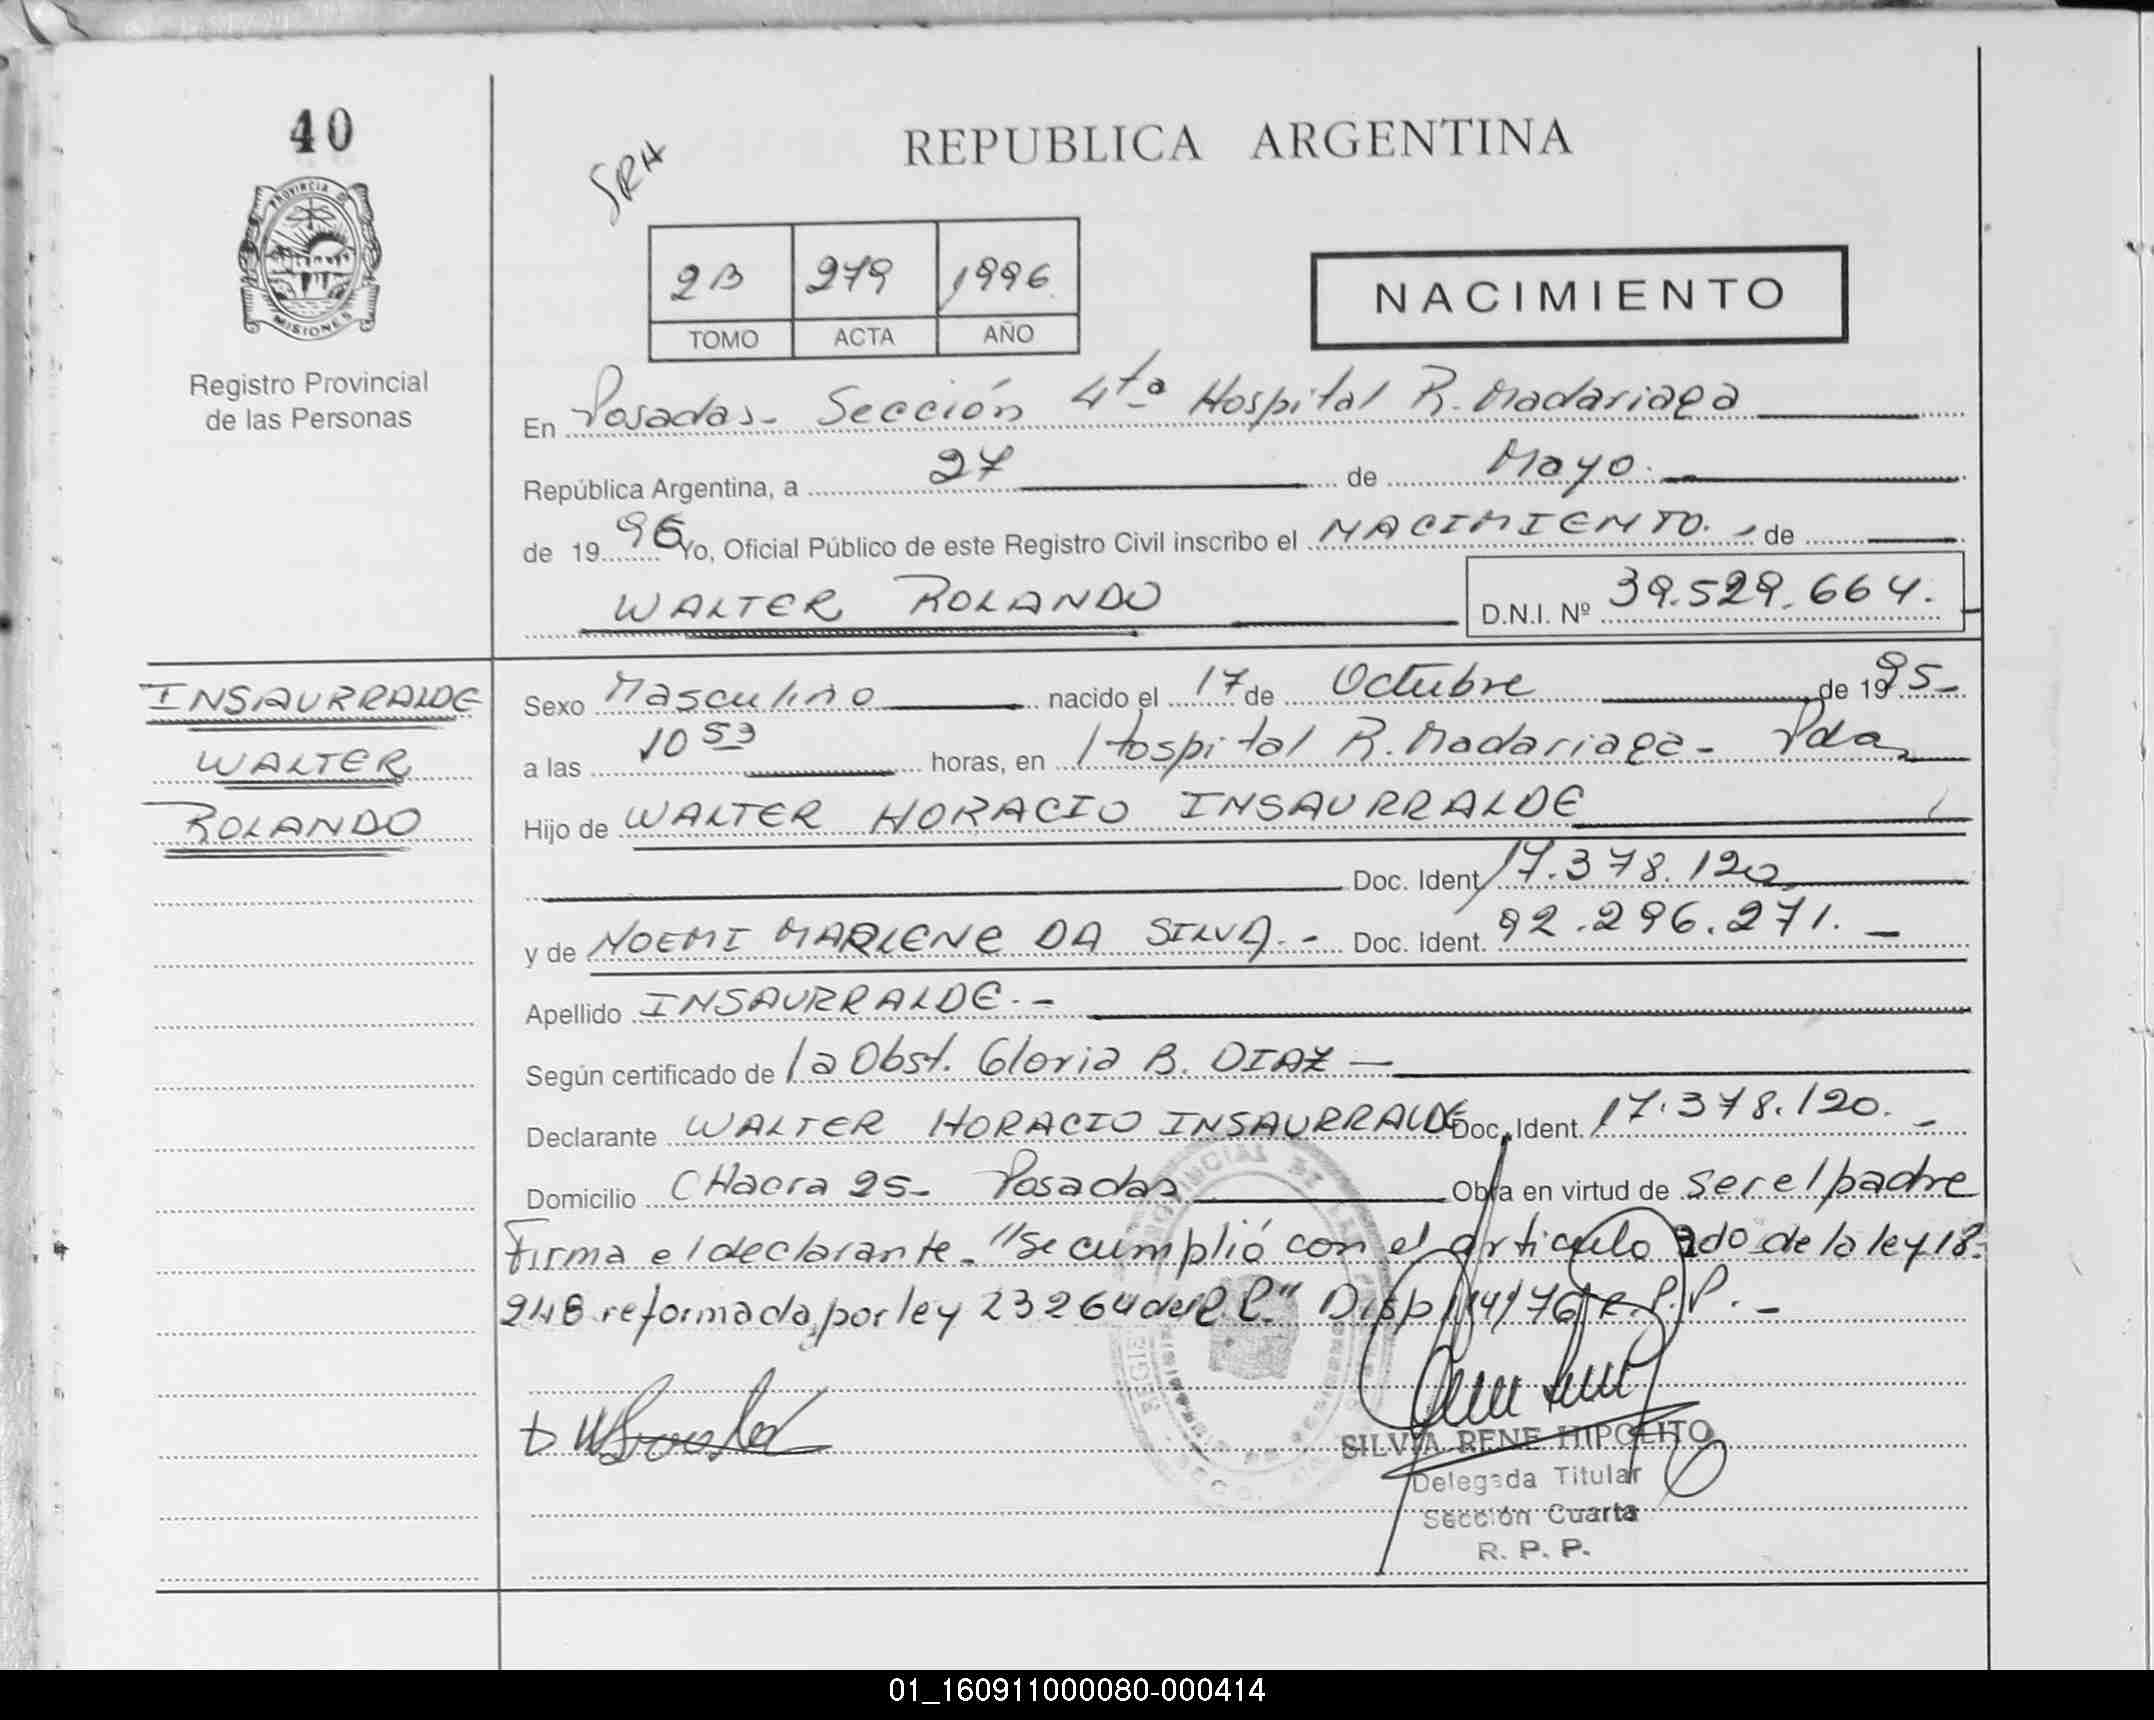 40
PROVINCIA DE
MISIONES
Registro Provincial
de las Personas
SRH
REPUBLICA ARGENTINA
2B 279 1996
TOMO ACTA AÑO
NACIMIENTO
En Posadas - Sección 4ta Hospital R. Madariaga
República Argentina, a 27 de Mayo.-
de 19 96 Yo, Oficial Público de este Registro Civil inscribo el NACIMIENTO.- de
WALTER ROLANDO D.N.I. Nº 39.529.664.-
INSAURRALDE
WALTER
ROLANDO
Sexo Masculino nacido el 17 de Octubre de 19 95-
a las 10 53 horas, en Hospital R. Madariaga - Pdas
Hijo de WALTER HORACIO INSAURRALDE
Doc. Ident. 17.378.120
y de NOEMI MARLENE DA SILVA.- Doc. Ident. 92.296.271.-
Apellido INSAURRALDE.-
Según certificado de la Obst. Gloria B. DIAZ -
Declarante WALTER HORACIO INSAURRALDE Doc. Ident. 17.378.120.-
Domicilio CHacra 25- Posadas Obra en virtud de ser el padre
Firma el declarante - "Se cumplió con el articulo 2do de la ley 18.
248 reformada por ley 23264 del" Disp 114/76 R.P.P.-
SILVIA RENE HIPOLITO
Delegada Titular
Sección Cuarta
R. P. P.
01_160911000080-000414